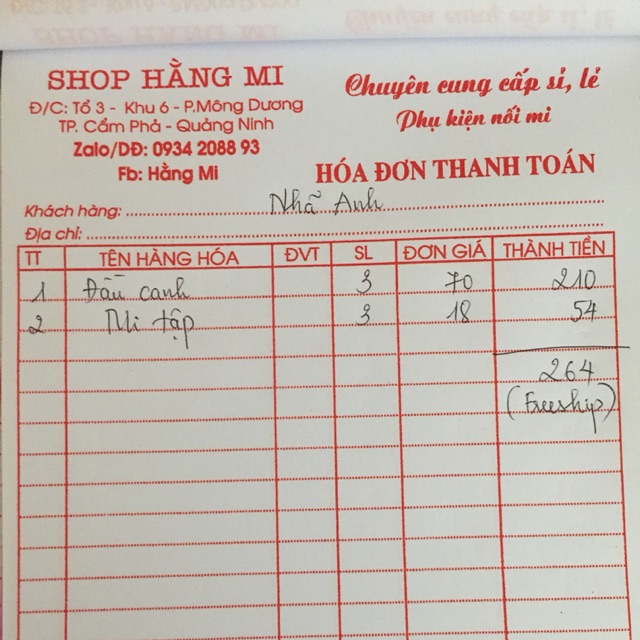 SHOP HẰNG MI
Đ/C: Tổ 3 - Khu 6 - P.Mông Dương
TP. Cẩm Phả - Quảng Ninh
Zalo/DĐ: 0934 2088 93
Fb: Hằng Mi
Chuyên cung cấp sỉ, lẻ
Phụ kiện nối mi
HÓA ĐƠN THANH TOÁN
Khách hàng: Nhã Anh
Địa chỉ:
TT TÊN HÀNG HÓA ĐVT SL ĐƠN GIÁ THÀNH TIỀN
1 Đầu canh 3 70 210
2 Mi tập 3 18 54
264
(Freeship)